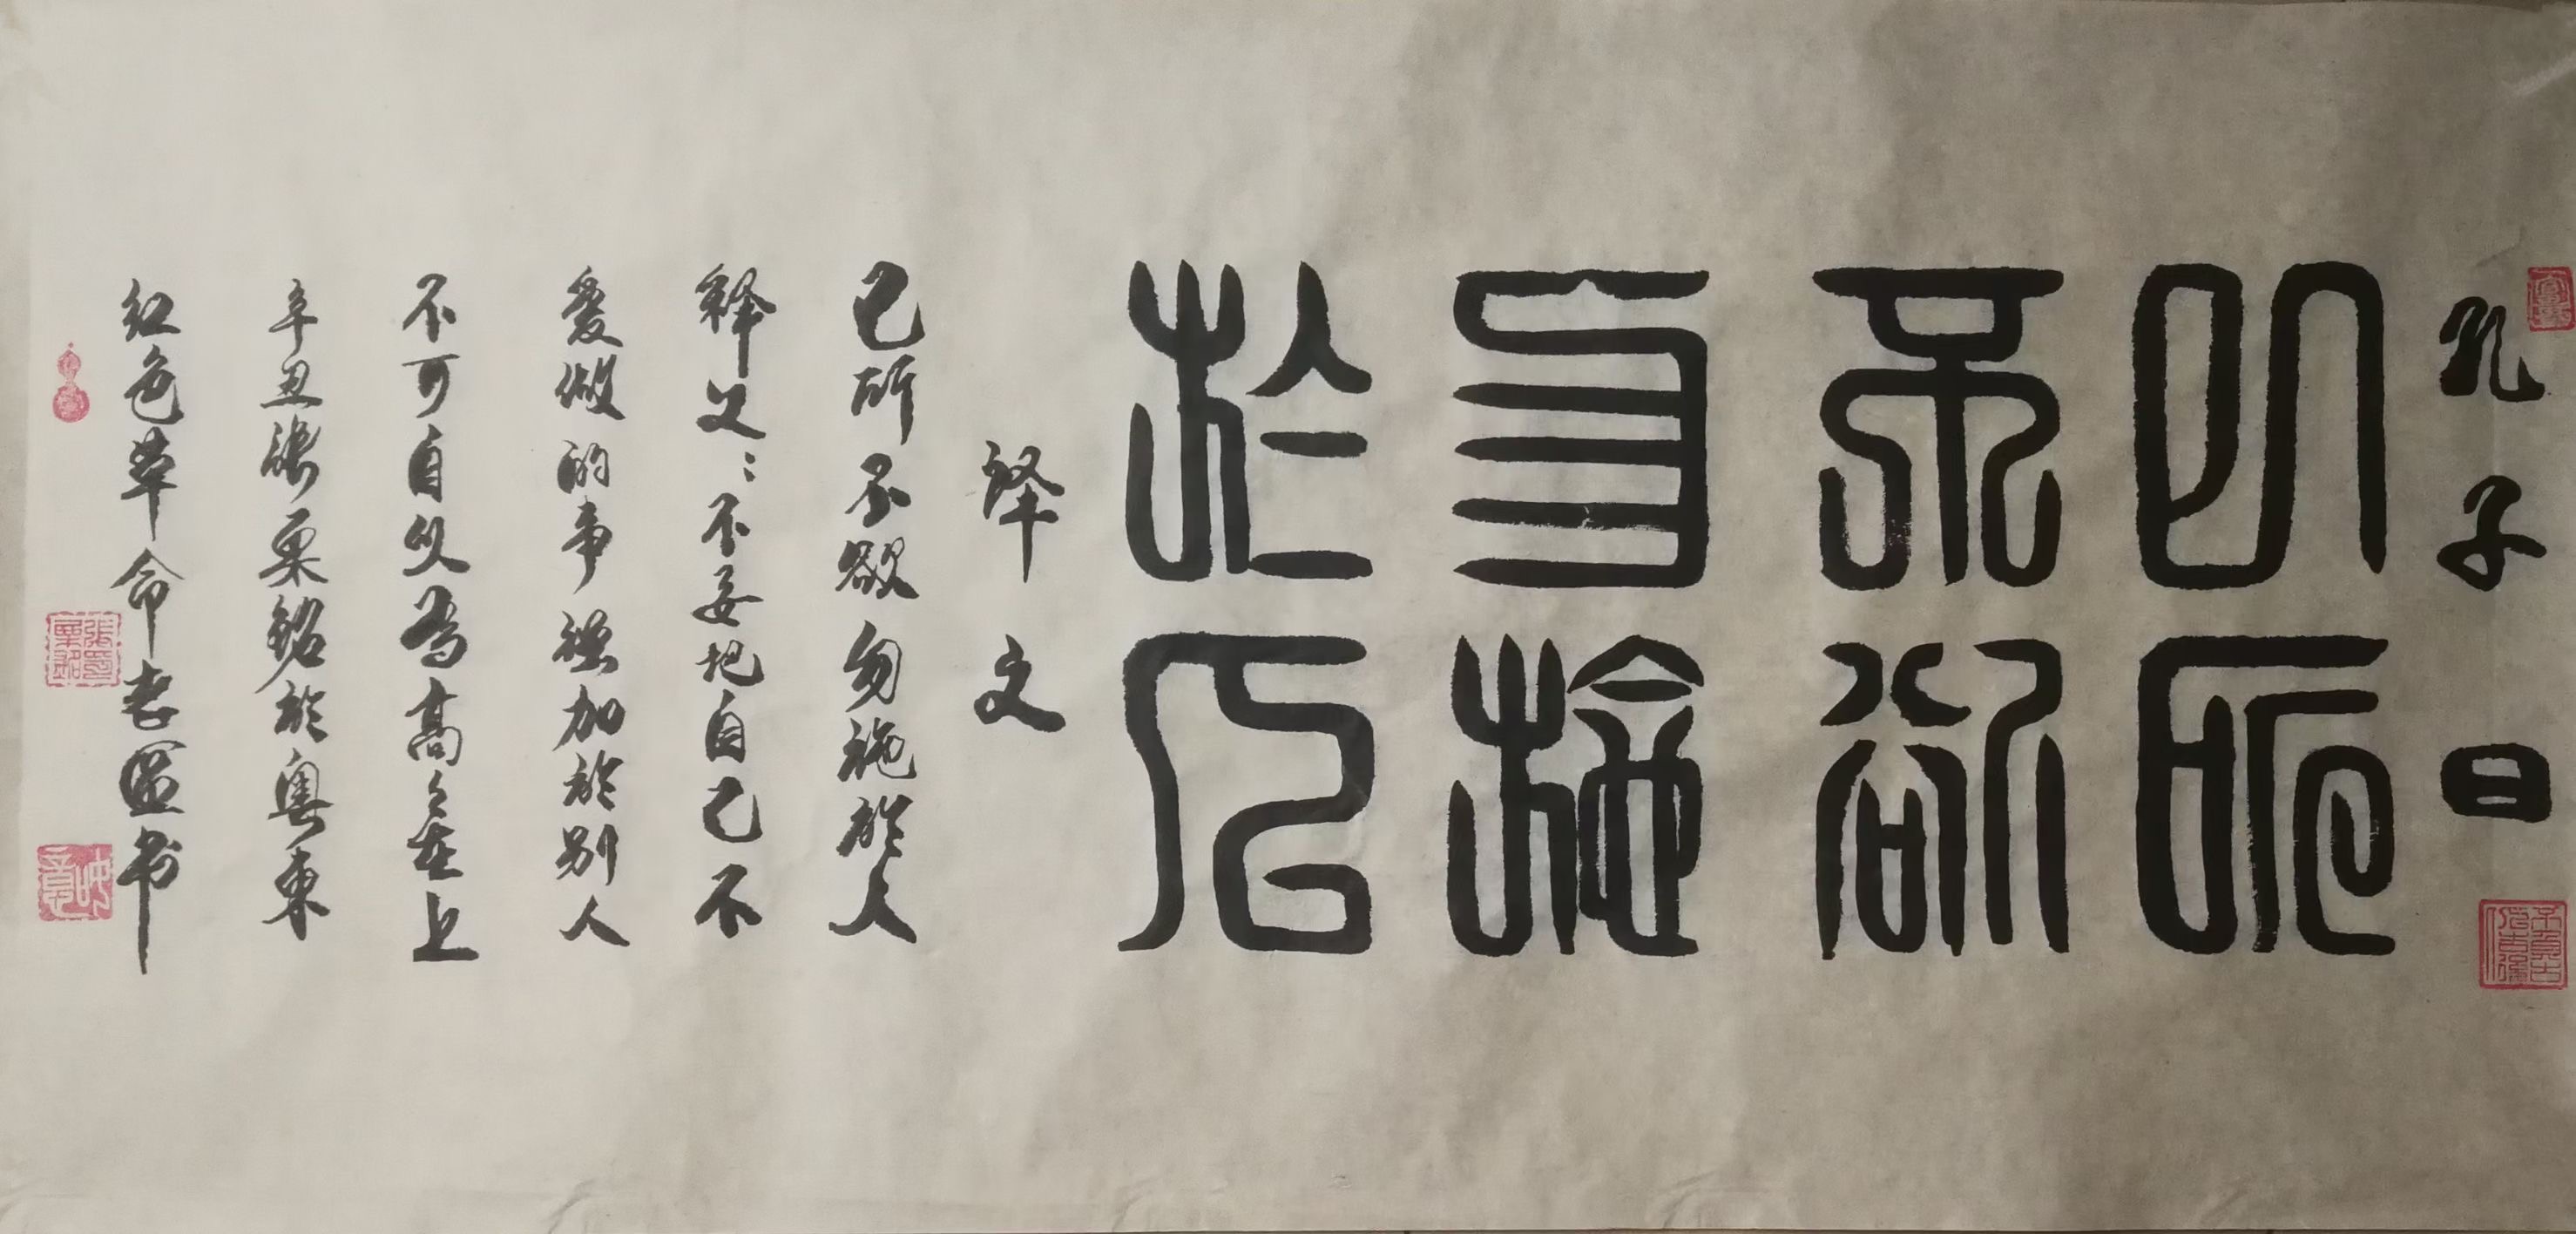 孔子曰
己所
不欲
勿施
於人
译文
己所不欲勿施於人
释义:不要把自己不
爱做的事强加於别人
不可自以为高々在上
辛丑张栗铭於粤东
红色革命老区书
張栗銘印